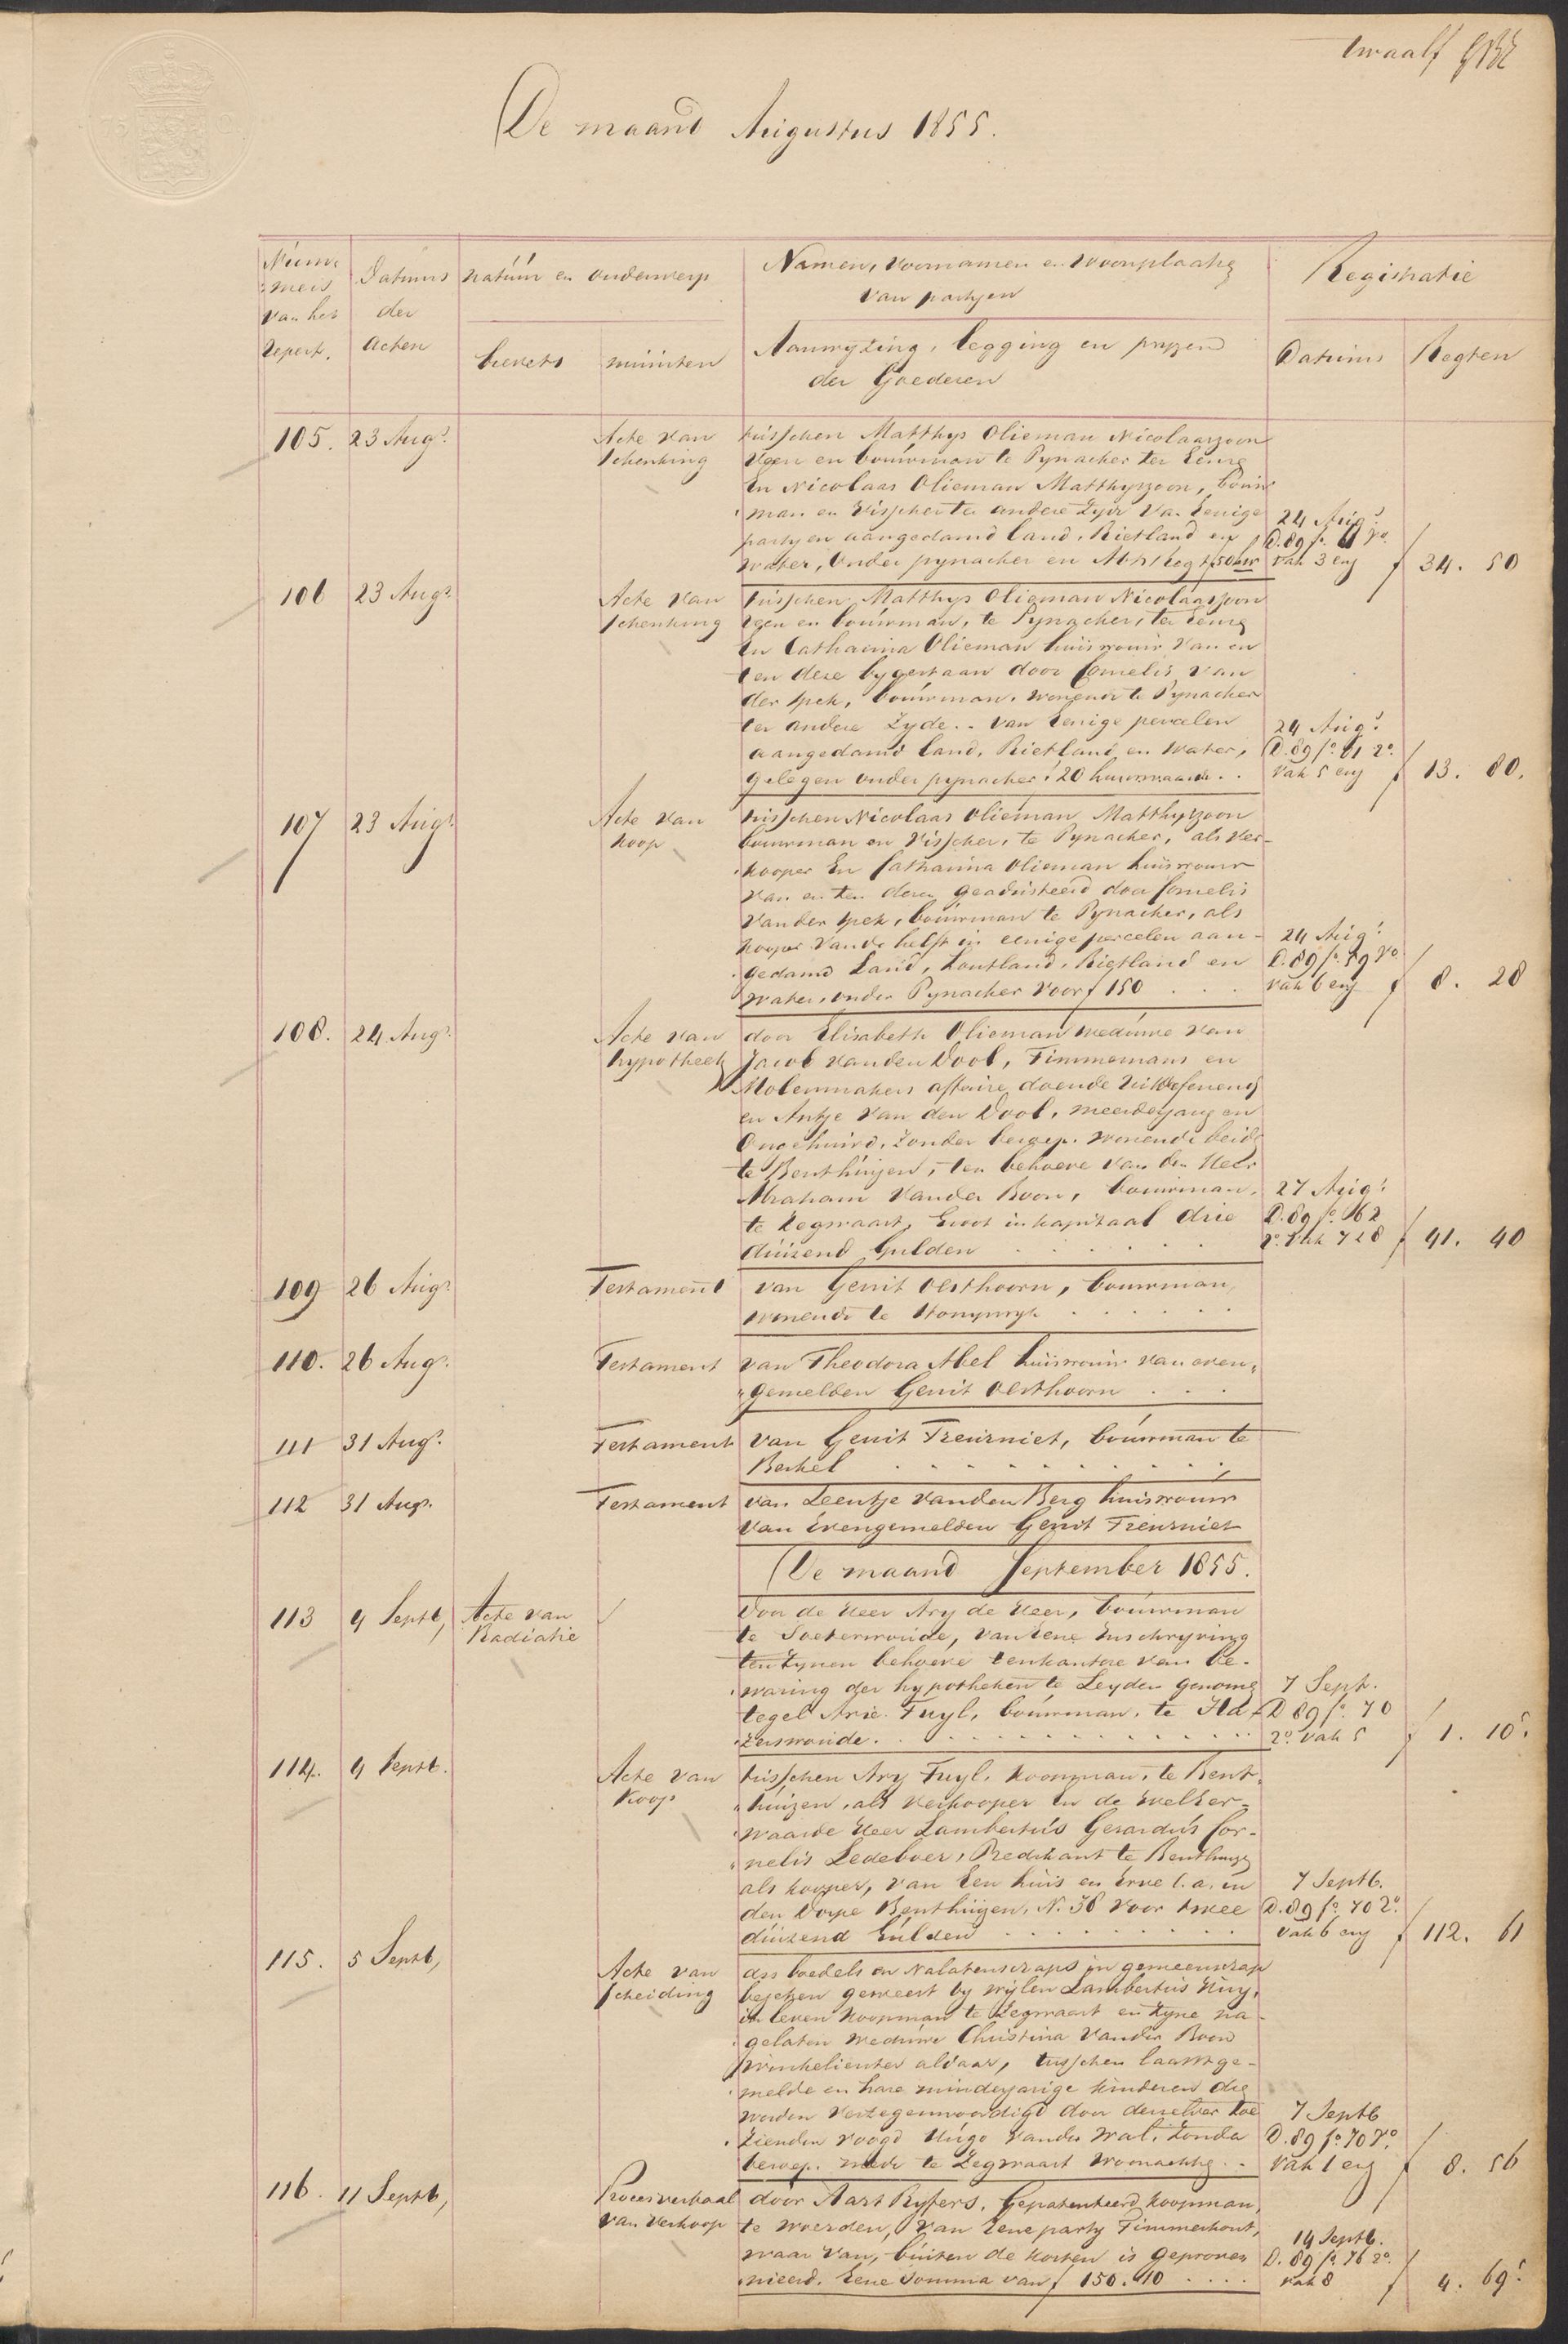 twaalf
De maand Augustus 1855.
Numme
mers
van het
Repert.
Datums
der
Acten
natúúr en onderwerp
brevets
minúten
Namen, voornamen en woonplaats
van partijen
Aanwyzing, legging en pryzen
der Goederen
Registratie
Datums
Regten
105. 23 Augs.
Acte van
schenking
tusschen Matthys Olieman Nicolaaszoon
en boúwman te Pynacker ter Eenre
En Nicolaas Olieman Matthyszoon, boúw
man en Visscher ter andere Zyde van Eenige
partyen aangedamd land, Rietland en
water, Onder pynacker en
24 Aug.
D. 89 fo.
vak 3 en f 34. 50
106 23 Augs.
Acte van
schenking
tusschen Matthys Olieman Nicolaaszoon
en boúwman, te Pynacker, ter Eenre
En Catharina Olieman huisvrouw van en
ten deze bygestaan door Cornelis van
der Spek, boúwman, wonende te Pynacker
ter andere Zyde.. van Eenige percelen
aangedamd land, Rietland, en water,
gelegen onder pynacker 20 huurwaarde..
24 Aug.
D. 89 fo. 61 ro.
vak 5 en f 13. 80.
107 23 Augs.
Acte van
koop
tusschen Nicolaas Olieman Matthyszoon
bouwman en Visscher, te Pynacker, als ver-
kooper En Catharina Olieman huisvrouw
van en ten deze geadsisteerd door Cornelis
Van der Spek, boúwman te Pynacker, als
kooper van de helft in eenige percelen aan-
gedamd Land, houtland, Rietland en
water, onder Pynacker voor f 150 . . .
24 Aug.
D. 89 fo. 59 vo.
vak 6 en f 8. 28
108. 24 Augs.
Acte van
hypotheek
door Elisabeth Olieman weduwe van
Jacob van den Dool, Timmermans en
Molenmakers affaire doende
en Antje van den Dool, meerderjarig en
Ongehúwd, Zonder beroep. wonende beide
te Benthúizen, ten behoeve van den Heer
Abraham Vander Boon, bouwman,
te Zegwaart, Groot in kapitaal drie
dúizend Gúlden
27 Aug.
D. 89 fo. 62
ro. vak 7 & 8 f 41. 40
109 26 Augs.
Testament
van Gerrit Olsthoorn, bouwman,
wonende te
110. 26 Augs.
Testament
van Theodora Abel huisvrouw van even-
gemelden Gerrit Olsthoorn
111 31 Augs.
Testament
van Gerrit Treurniet, boúwman te
Berkel
112 31 Augs.
Testament
van Leentje van den Berg huisvrouw
van Evengemelden Gerrit Treurniet
De maand September 1855.
113 4 Septb,
Acte van
Radiatie
Door de Heer Ary de Heer, boúwman
te Soeterwoúde, van Eene Inschryving
ten Zynen behoeve ten kantore van be-
waring der hypotheken te Leyden genomen
tegel Arie Tuyl, boúwman, te Ha-
zerswoúde.
7 Sept.
D 89 fo. 70
ro. vak 5 f 1. 10⁵
114. 4 Septb.
Acte van
Koop
tusschen Ary Tuyl, koopman, te Bent-
húizen, als verkooper En de weleer-
waarde Heer Lambertús Gerardús Cor-
nelis Ledeboer, Predikant te Benthuizen
als kooper, van Een húis en Erve C.a. in
den Dorpe Benthúizen, N. 38 voor twee
dúizend Gúlden
7 Septb.
D. 89 fo. 70 ro.
vak 6 en f 112. 61
115. 5 Septb,
Acte van
Scheiding
des boedels en Nalatenschaps in gemeenschap
bezeten geweest by wylen Lambertús Húy,
in leven koopman te Zegwaart en Zyne na-
gelaten weduwe Christina Vander Boon
Winkelierster aldaar, tusschen laastge-
melde en hare minderjarige kinderen die
worden vertegenwoordigd door derzelver toe
Zienden voogd Húgo vander Wal, Zonder
beroep. mede te Zegwaart woonachtig. .
7 Septb
D. 89 fo. 70 vo.
vak 1 en f 8. 56
116. 11 Septb,
Procesverbaal
van Verkoop
door Aart Ryfers, Gepatenteerd koopman,
te Woerden, van Eene party Timmerhout,
waar van, búiten de kosten is geproven
nieerd, Eene Somma van f 150. 10
14 Septb.
D. 89 fo. 76 ro.
vak 8 f 4. 69⁵